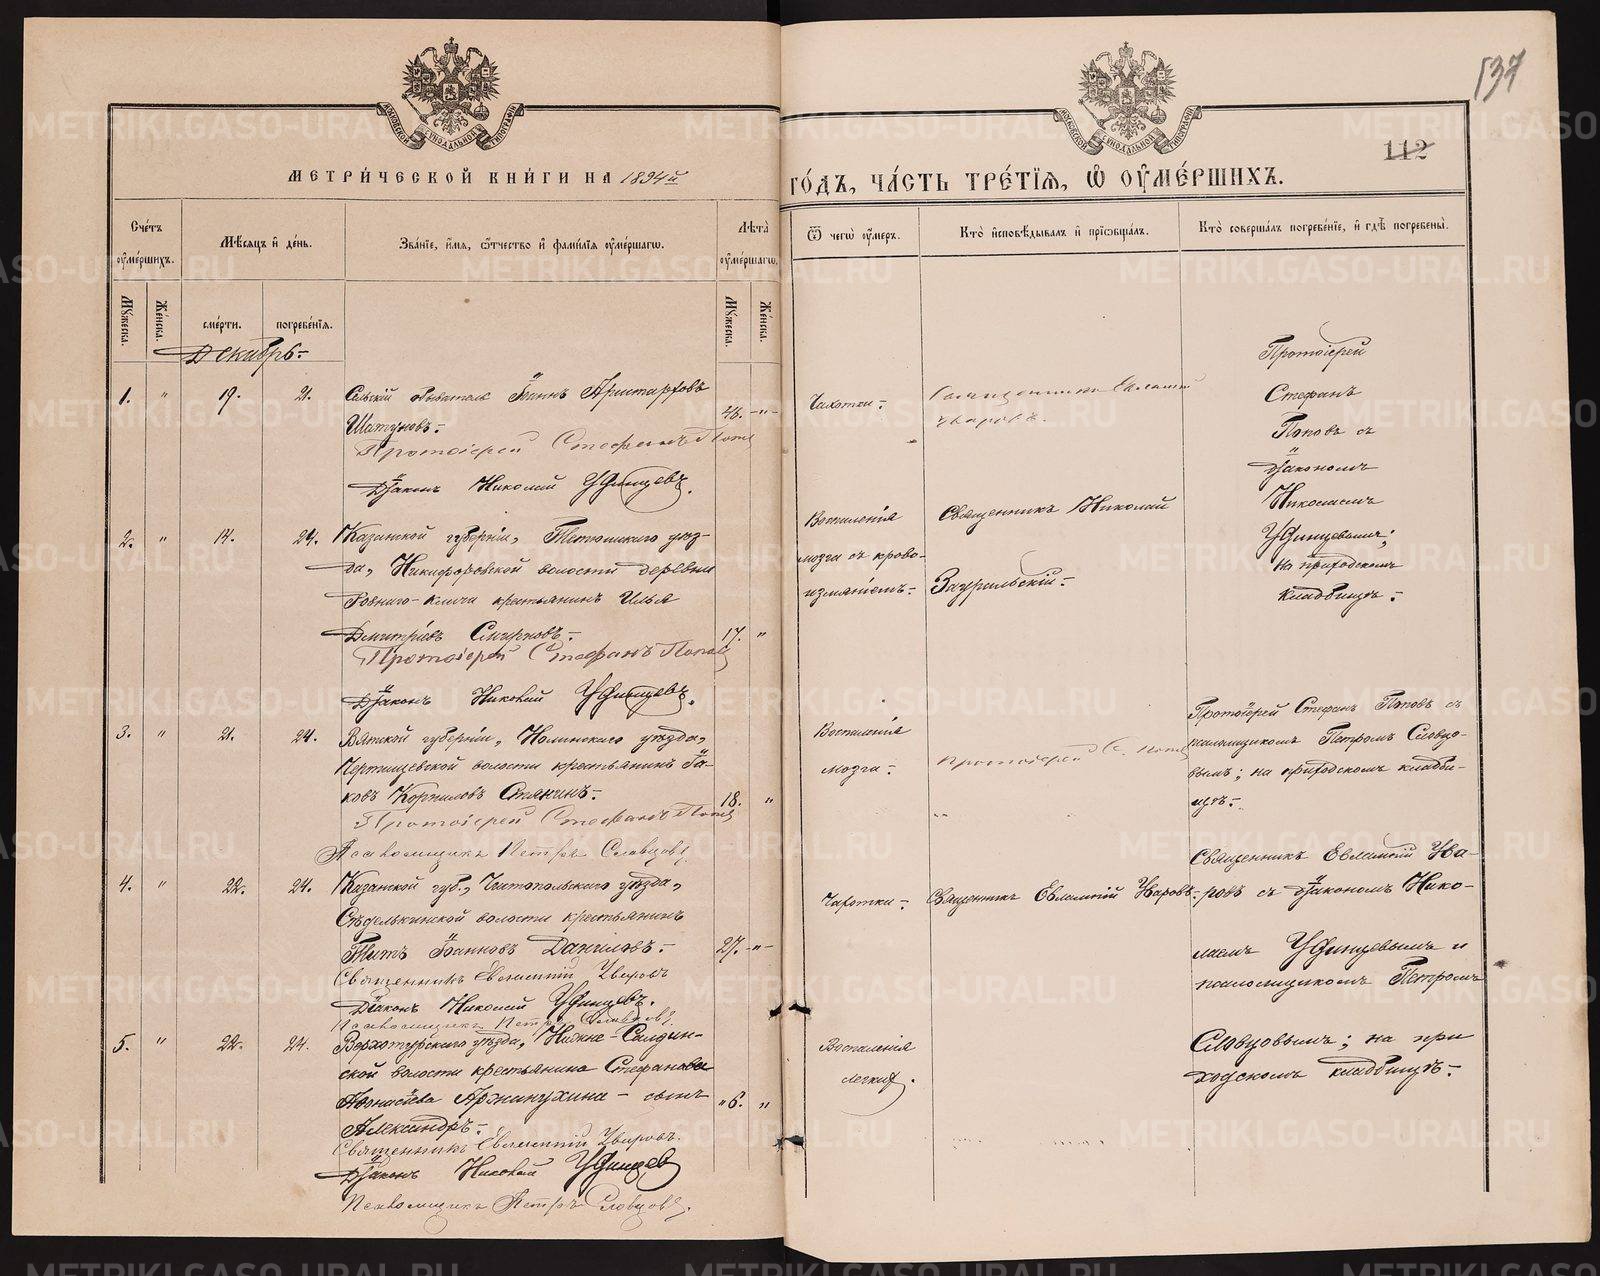 137
112
МЕТРИ́ЧЕСКОЙ КНИ́ГИ НА 1894й
ГО́ДЪ, ЧА́СТЬ ТРЕ́ТІѦ, Ѡ҆ ОУ҆МЕ́РШИХЪ.
Сче́тъ оу҆ме́ршихъ.
Мѣ́сѧцъ и҆ де́нь.
Зва́нїе, и҆́мѧ, ѻ҆́тчество и҆ фами́лїѧ оу҆ме́ршагѡ.
Лѣ́та оу҆ме́ршагѡ.
Ѿ чегѡ̀ оу҆́меръ.
Кто̀ и҆сповѣ́дывалъ и҆ прїѡбща́лъ.
Кто̀ соверша́лъ погребе́нїе, и҆ гдѣ̀ погребены̀.
Мꙋ́жеска.
Же́нска.
сме́рти.
погребе́нїѧ.
Мꙋ́жеска.
Же́нска.
Декабрь.-
1. " 19. 21. Сельскій обыватель Іоаннъ Аристарховъ
Шатуновъ.- 46. -"-
Протоіерей Стефанъ Попов
Діаконъ Николай Удинцевъ.
Чахотки.-
Евлампій
Уваровъ.
Протоіерей
Стефанъ
Поповъ съ
діакономъ
Николаемъ
Удинцевымъ;
на приходскомъ
кладбищѣ.-
2. " 17. 24. Казанской губерніи, Тетюшскаго уѣз-
да, Никифоровской волости деревни
Ровнаго-ключа крестьянинъ Илья
Дмитріевъ Смирновъ.- 17. "
Протоіерей Стефанъ Попов
Діаконъ Николай Удинцевъ.
Воспаленія
мозга съ крово-
изліяніемъ.-
Священникъ Николай
Зауральскій.-
3. " 21. 24. Вятской губерніи, Нолинскаго уѣзда,
Чертищевской волости крестьянинъ Іа-
ковъ Корниловъ 18. "
Протоіерей Стефанъ Попов
Псаломщикъ Петръ Словцовъ
Воспаленія
мозга.-
Протоіерей С. Попов
Протоіерей Стефанъ Поповъ съ
псаломщикомъ Петромъ Словцо-
вымъ; на приходскомъ кладби-
щѣ.-
4. " 22. 24. Казанской губ., Чистопольскаго уѣзда,
Сѣделькинской волости крестьянинъ
Титъ Іоанновъ Даниловъ.- 27. -"-
Священникъ Евлампій Уваровъ
Діаконъ Николай Удинцевъ.
Псаломщикъ Петръ Словцовъ
Чахотки.-
Священникъ Евлампій Уваровъ.-
Священникъ Евлампій Ува-
ровъ съ діакономъ Нико-
лаемъ Удинцевымъ и
псаломщикомъ Петромъ
Словцовымъ; на при
ходскомъ кладбищѣ.-
5. " 22. 24. Верхотурскаго уѣзда, Нижне-Салдин-
ской волости крестьянина Стефана
сынъ "6. "
Александръ.-
Священникъ Евлампій Уваровъ.
Діаконъ Николай Удинцев
Псаломщикъ Петръ Словцовъ.
Воспаленія
легких.
METRIKI.GASO-URAL.RU